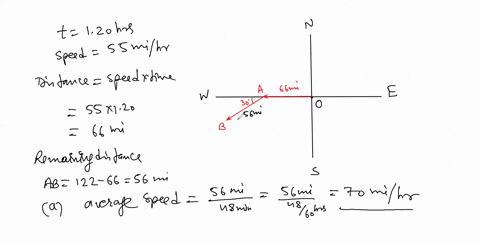 t = 1.20 hrs
Speed = 55 mi/hr
Distance = speed x time
= 55 x 1.20
= 66 mi
Remaining distance
AB = 122 - 66 = 56 mi
(a) average speed = 56 mi / 48 min = 56 mi / 48/60 hrs = 70 mi/hr
N
W
A
66 mi
E
30°
56 mi
O
B
S